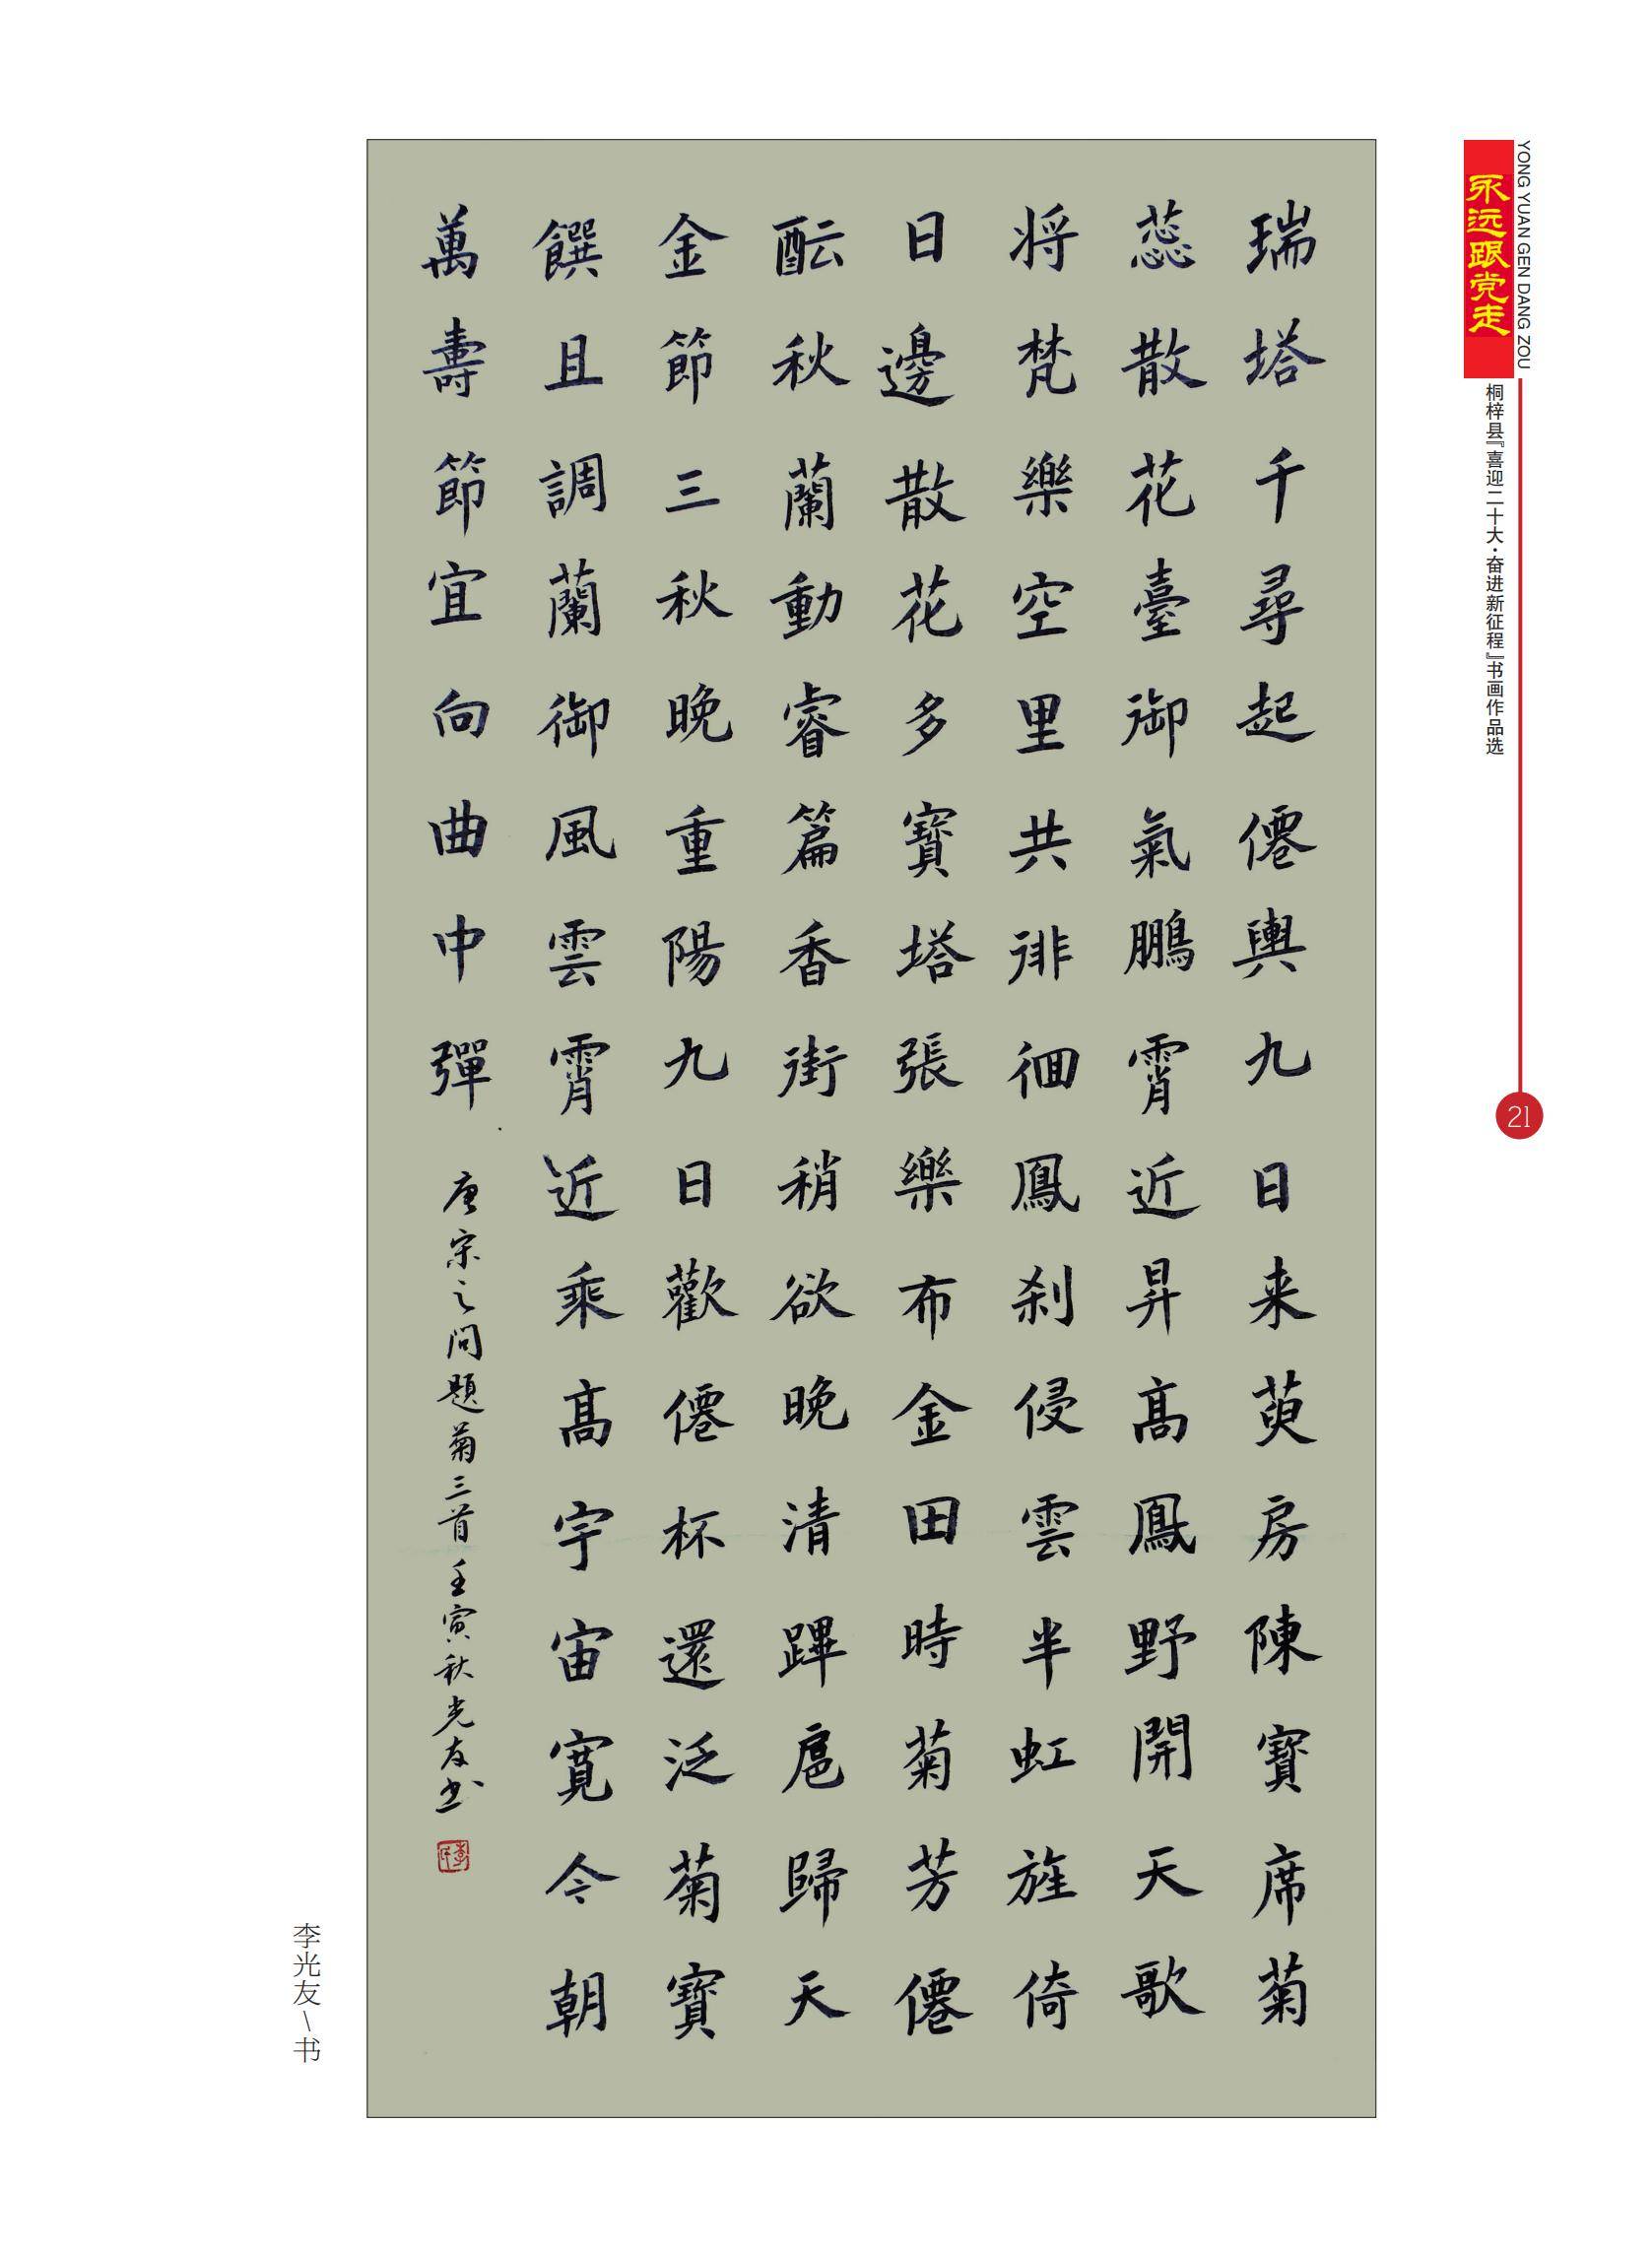 永远跟党走
YONG YUAN GEN DANG ZOU
桐梓县『喜迎二十大·奋进新征程』书画作品选
21
瑞塔千尋起僊輿九日来萸房陳寶席菊
蕊散花臺御氣鵬霄近昇高鳳野開天歌
将梵樂空里共徘徊鳳刹侵雲半虹旌倚
日邊散花多寶塔張樂布金田時菊芳僊
酝秋蘭動睿篇香街稍欲晚清蹕扈歸天
金節三秋晚重陽九日歡僊杯還泛菊寶
饌且調蘭御風雲霄近乘高宇宙寬今朝
萬壽節宜向曲中彈
唐宋之問題菊三首壬寅秋光友书
李光友\书